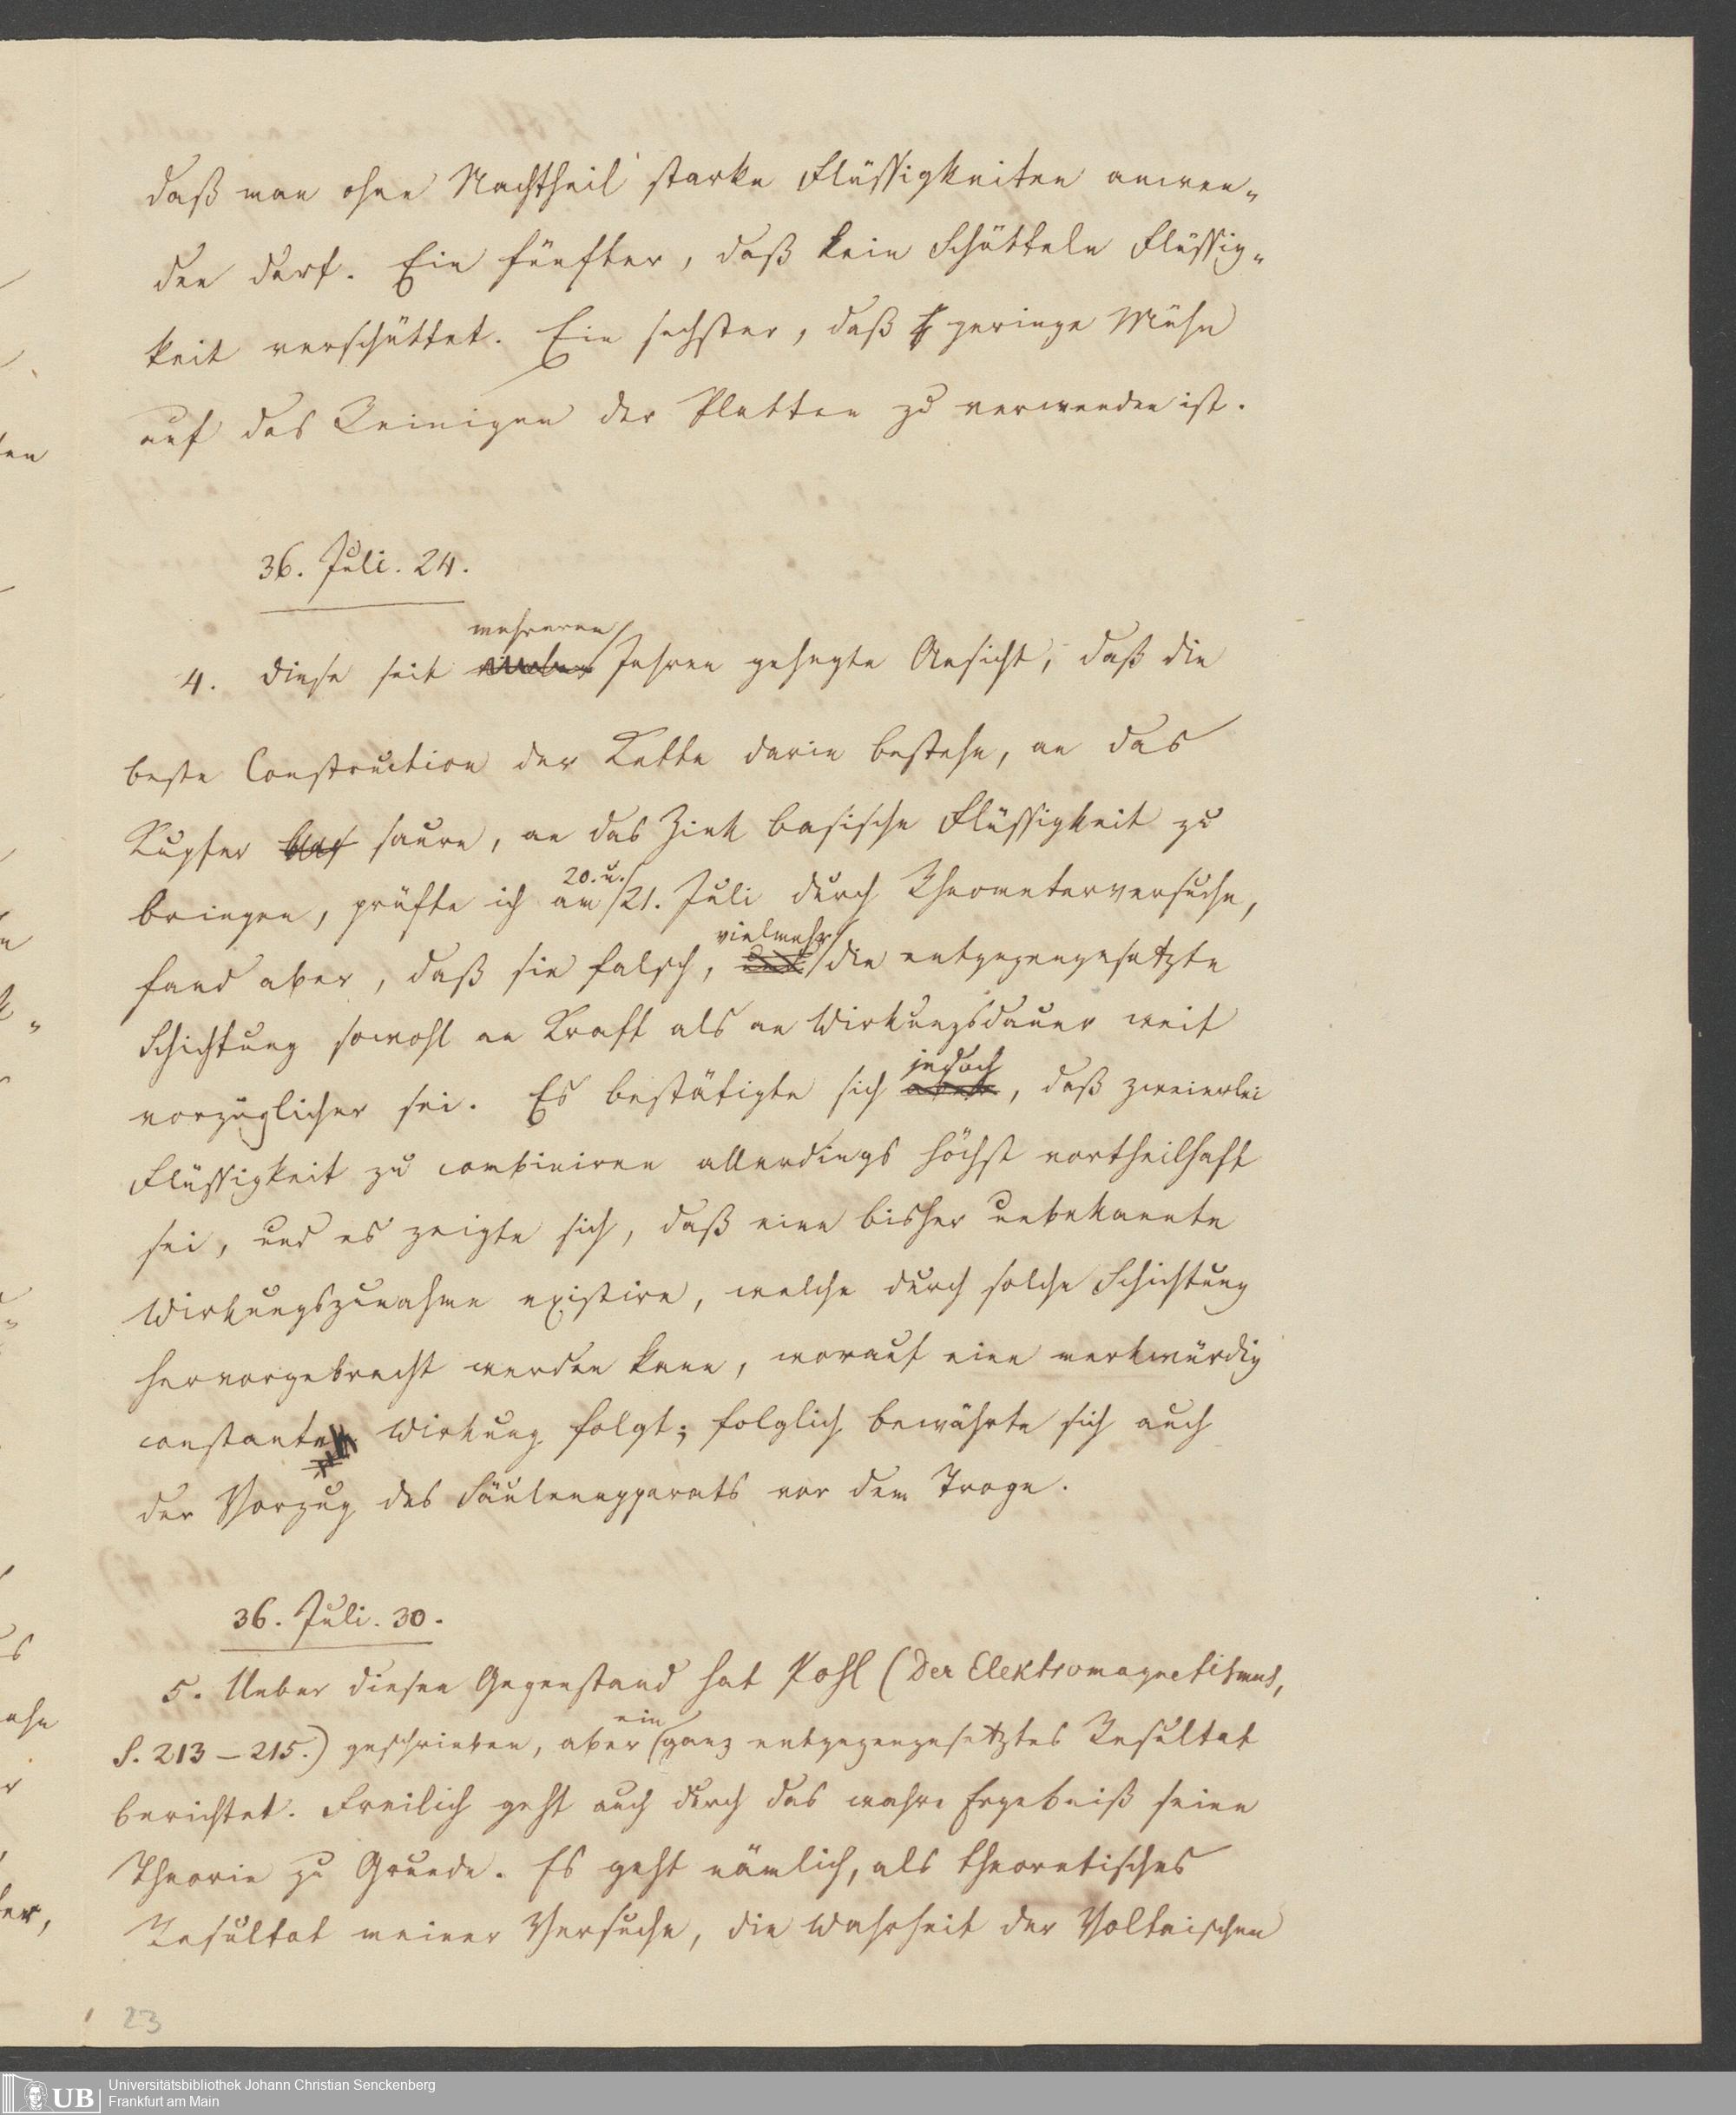 daß man ohne Nachtheil starke Flüssigkeiten anwen-
den darf. Ein fünfter, daß kein Schütteln Flüssig-
keit verschüttet. Ein sechster, daß geringe Mühe
auf das Reinigen der Platten zu verwenden ist.
36. Juli. 24.
mehreren
4. Diese seit Jahren gehegte Ansicht, daß die
beste Construction der Kette darin bestehe, an das
Kupfer saure, an das Zink basische Flüssigkeit zu
20. u.
bringen, prüfte ich am 21. Juli durch Rheometerversuche,
vielmehr
fand aber, daß sie falsch, die entgegengesetzte
Schichtung sowohl an Kraft als an Wirkungsdauer weit
jedoch
vorzüglicher sei. Es bestätigte sich aber, daß zweierlei
Flüssigkeit zu combiniren allerdings höchst vortheilhaft
sei, und es zeigte sich, daß eine bisher unbekannte
Wirkungszunahme existire, welche durch solche Schichtung
hervorgebracht werden kann, worauf eine merkwürdig
constante Wirkung folgt; folglich bewährte sich auch
der Vorzug des Säulenapparats vor dem Troge.
36. Juli. 30.
5. Ueber diesen Gegenstand hat Pohl (Der Elektromagnetismus,
ein
S. 213–215.) geschrieben, aber ganz entgegengesetztes Resultat
berichtet. Freilich geht auch durch das wahre Ergebniß seine
Theorie zu Grunde. Es geht nämlich, als theoretisches
Resultat meiner Versuche, die Wahrheit der Voltaischen
23
UB
Universitätsbibliothek Johann Christian Senckenberg
Frankfurt am Main